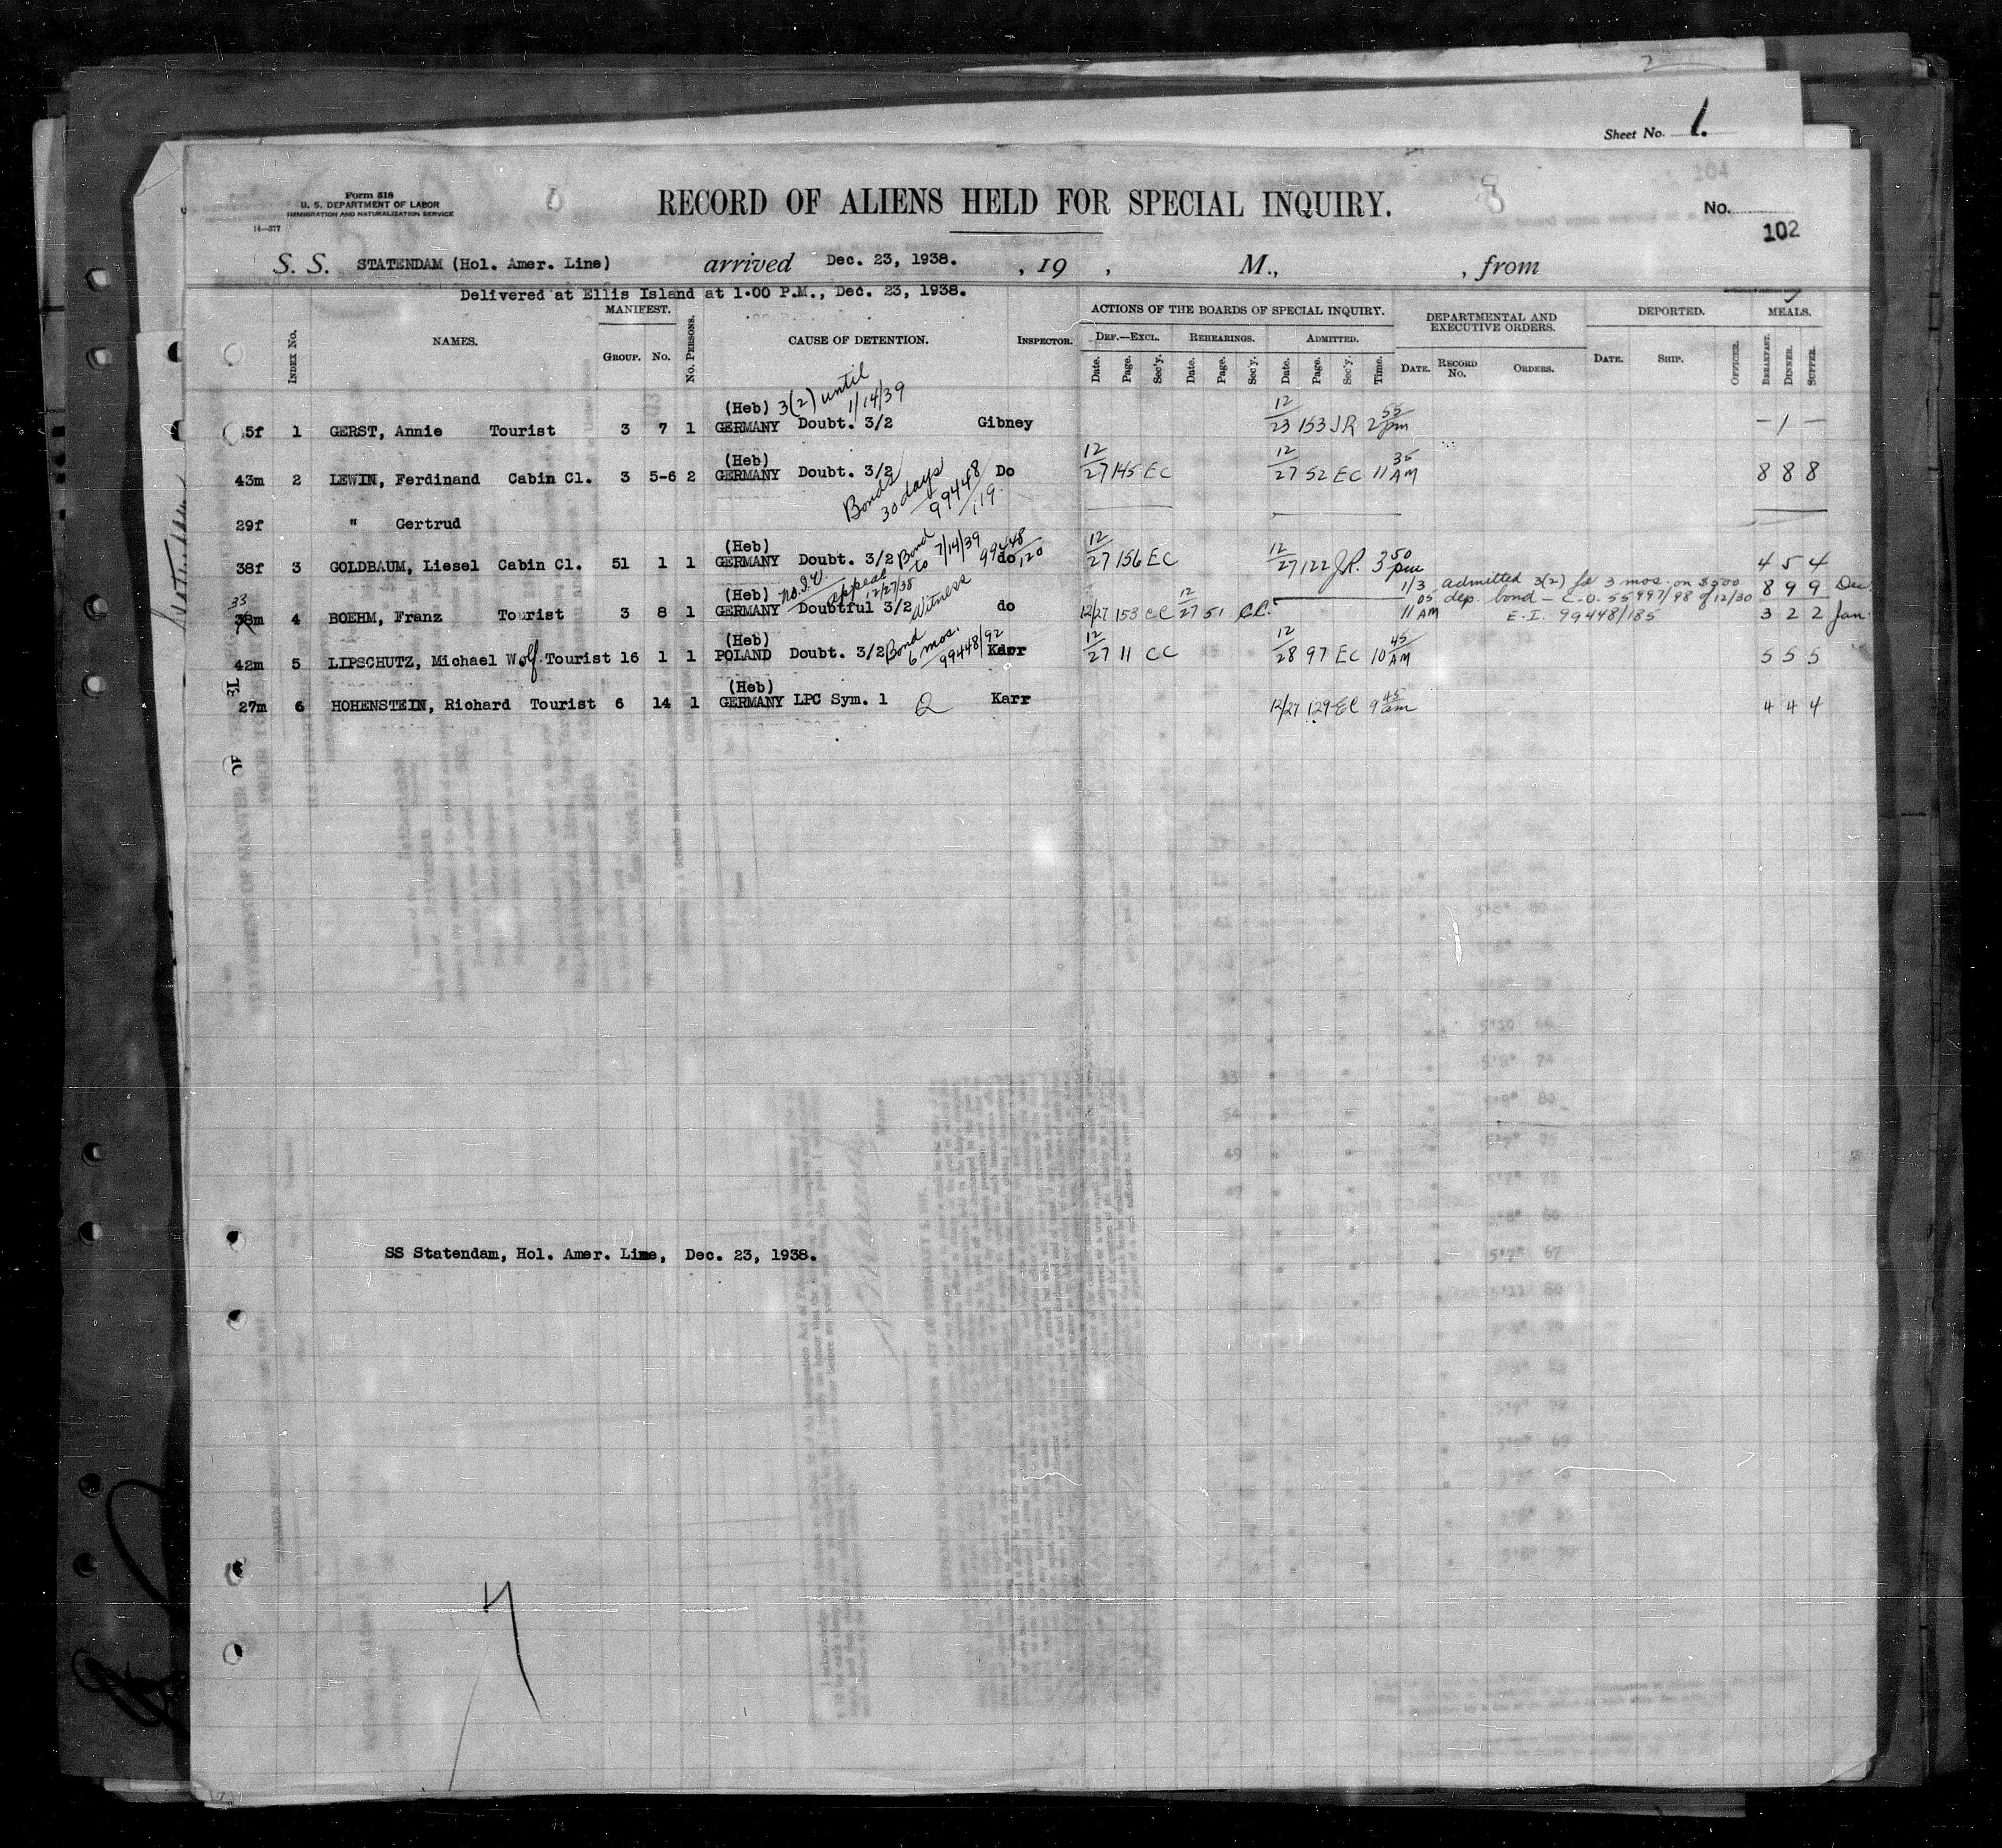 Sheet No. 1.
104
Form 518
U. S. DEPARTMENT OF LABOR
IMMIGRATION AND NATURALIZATION SERVICE
14—277
RECORD OF ALIENS HELD FOR SPECIAL INQUIRY.
8
No.
102
S. S. STATENDAM (Hol. Amer. Line) arrived Dec. 23, 1938. , 19 , M., , from
Delivered at Ellis Island at 1.00 P.M., Dec. 23, 1938.
Index No. NAMES. MANIFEST. Group. No. No. Persons. CAUSE OF DETENTION. Inspector. ACTIONS OF THE BOARDS OF SPECIAL INQUIRY. DEPARTMENTAL AND EXECUTIVE ORDERS. DEPORTED. MEALS.
Def.—Excl. Rehearings. Admitted.
Date. Page. Sec'y. Date. Page. Sec'y. Date. Page. Sec'y. Time. Date. Record No. Orders. Date. Ship. Officer. Breakfast. Dinner. Supper.
(Heb) 3(2) until 1/14/39
5f 1 GERST, Annie Tourist 3 7 1 GERMANY Doubt. 3/2 Gibney 12/23 153 JR 2 55/pm — 1 —
(Heb)
43m 2 LEWIN, Ferdinand Cabin Cl. 3 5-6 2 GERMANY Doubt. 3/2 Do 12/27 145 EC 12/27 52 EC 11 35/AM 8 8 8
Bonds 30 days 99448/119
29f " Gertrud
(Heb)
38f 3 GOLDBAUM, Liesel Cabin Cl. 51 1 1 GERMANY Doubt. 3/2 Bond to 7/14/39 99448/120 do 12/27 156 EC 12/27 122 J.R. 3 50/pm 4 5 4
(Heb) appeal 12/27/38 Witness
33
38m 4 BOEHM, Franz Tourist 3 8 1 GERMANY Doubtful 3/2 do 12/27 153 CC 12/27 51 C.C. 1/3 admitted 3(2) for 3 mos. on $500 8 9 9 Dec.
dep. bond — C.O. 55997/98 of 12/30
11 AM E.I. 99448/185 3 2 2 Jan.
(Heb)
42m 5 LIPSCHUTZ, Michael Wolf Tourist 16 1 1 POLAND Doubt. 3/2 Bond 6 mos. 99448/92 Karr 12/27 11 CC 12/28 97 EC 10 45/AM 5 5 5
(Heb)
27m 6 HOHENSTEIN, Richard Tourist 6 14 1 GERMANY LPC Sym. 1 Q Karr 12/27 129 EC 9 45/am 4 4 4
SS Statendam, Hol. Amer. Line, Dec. 23, 1938.
7